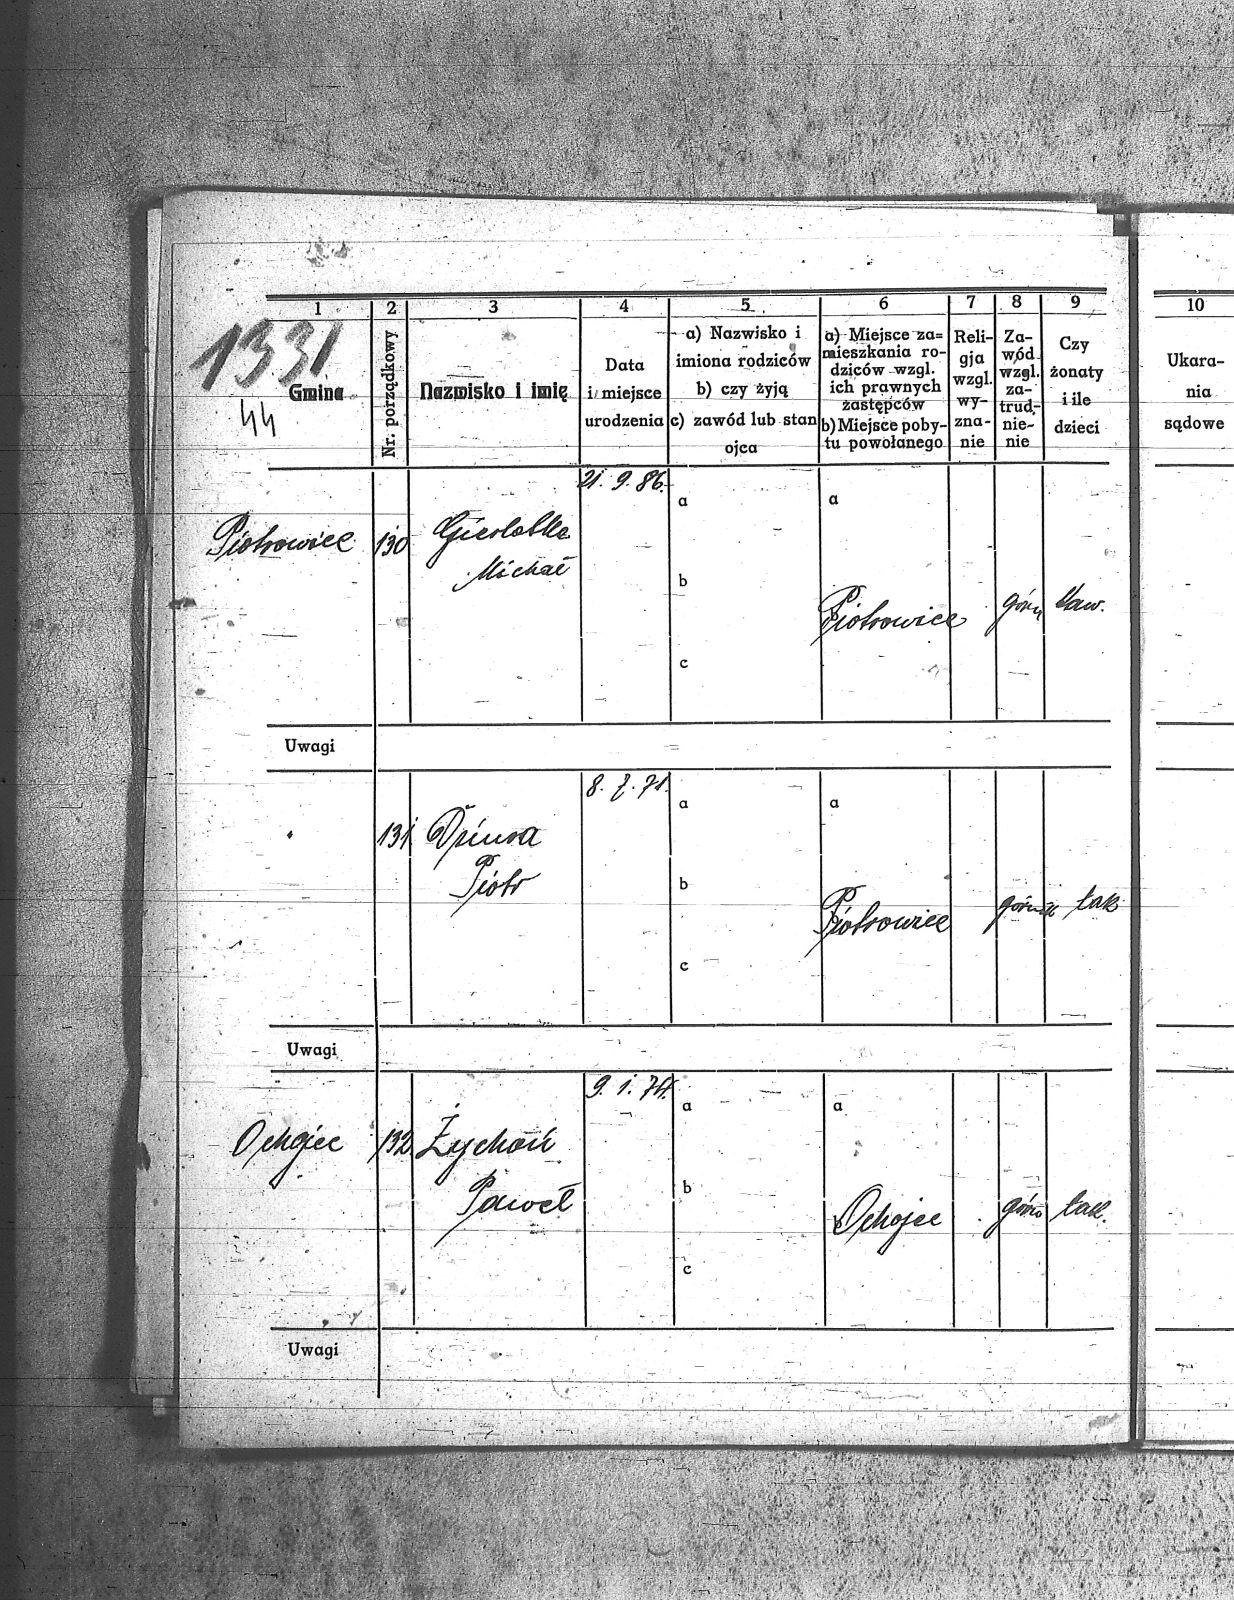 1 2 3 4 5 6 7 8 9 10
1331
44
Gmina
Nr. porządkowy
Nazwisko i imię
Data
i miejsce
urodzenia
a) Nazwisko i
imiona rodziców
b) czy żyją
c) zawód lub stan
ojca
a) Miejsce za=
mieszkania ro-
dziców wzgl.
ich prawnych
zastępców
b) Miejsce poby-
tu powołanego
Reli-
gja
wzgl.
wy-
zna-
nie
Za-
wód
wzgl.
za-
trud-
nie-
nie
Czy
żonaty
i ile
dzieci
Ukara-
nia
sądowe
21. 9. 86.
a a
Piotrowice 130
Michał
b
Piotrowice górn
c
Uwagi
8. 7. 71.
a a
131 Dziura
Piotr
b
Piotrowice górnik tak
c
Uwagi
9. 1. 74.
a a
Ochojec 132 Żychoń
Paweł
b
Ochojec górn tak.
c
Uwagi